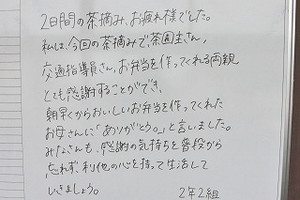 2日間の茶摘み、お疲れ様でした。
私は、今回の茶摘みで、茶園主さん,
交通指導員さん,お弁当を作ってくれる両親
とても感謝することができ,
朝早くからおいしいお弁当を作ってくれた
お母さんに「ありがとう。」と言いました。
みなさんも、感謝の気持ちを普段から
忘れず、利他の心を持って生活して
いきましょう。 2年2組